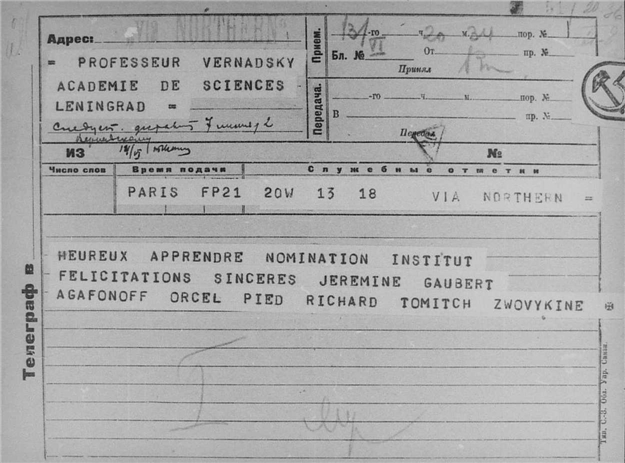 "VIA NORTHERN"
Адрес:
= PROFESSEUR VERNADSKY
ACADEMIE DE SCIENCES
LENINGRAD =
Прием.
13/VI -го ч. 20 м. 34 пор. №
Бл. № От пр. №
Принял
Передача.
-го ч. м. пор. №
В пр. №
Передал
ИЗ №
Число слов Время подачи Служебные отметки
PARIS FP21 20W 13 18 VIA NORTHERN =
HEUREUX APPRENDRE NOMINATION INSTITUT
FELICITATIONS SINCERES JEREMINE GAUBERT
AGAFONOFF ORCEL PIED RICHARD TOMITCH ZWOVYKINE
Телеграф в
Тип. С.-З. Обл. Упр. Связи.